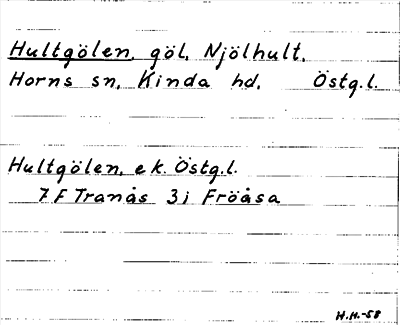 Hultgölen, göl, Njölhult,
Horns sn, Kinda hd, Östg.l.
Hultgölen, ek. Östg.l.
7 F Tranås 3 j Fröåsa
H.H.-58